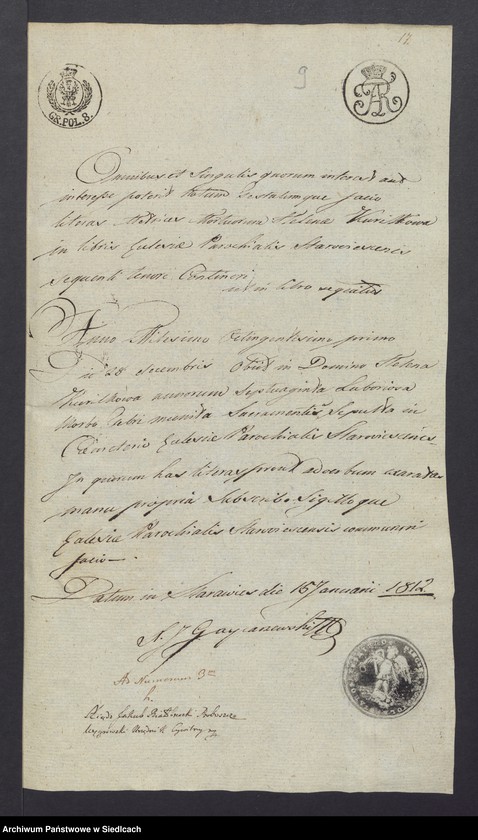 17.
9
GR.POL.8.
AR
Omnibus et Singulis quorum interest aut
interesse poterit Notum Testatumque facio
literas Metrices Mortuorum Helena Kurilkowa
in libris Ecclesiæ Parochialis Starowiesensis
sequenti tenore Contineri
ut in libro
Anno Milesimo Octingentesimo primo
die 28 Decembris Obiit in Domino Helena
Kurilkowa annorum Septuaginta Laboriosa
Morbo munita Sacramentis Sepulta in
Cæmeterio Ecclesiæ Parochialis Starowiesensis
In quorum has literas prout ad verbum
manu propria Subscribo Sigilloque
Ecclesiæ Parochialis Starowiesensis communiri
facio
Datum in Starawies die 16 Januarii 1812
Ad Numerum 3
Xiądz Jakub Proboszcz
Urzędnik Cywilny
Archiwum Państwowe w Siedlcach